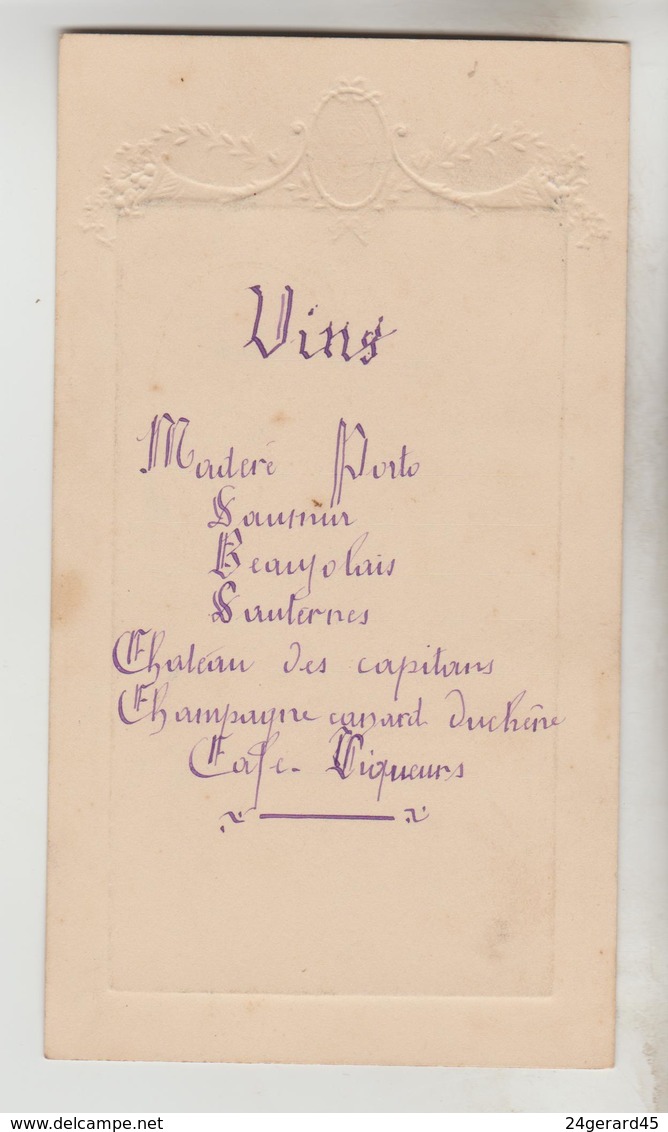 Vins
Maderé Porto
Saumur
Beaujolais
Sauternes
Château des capitans
Champagne canard Duchêne
Café - Liqueurs
www.delcampe.net
24gerard45